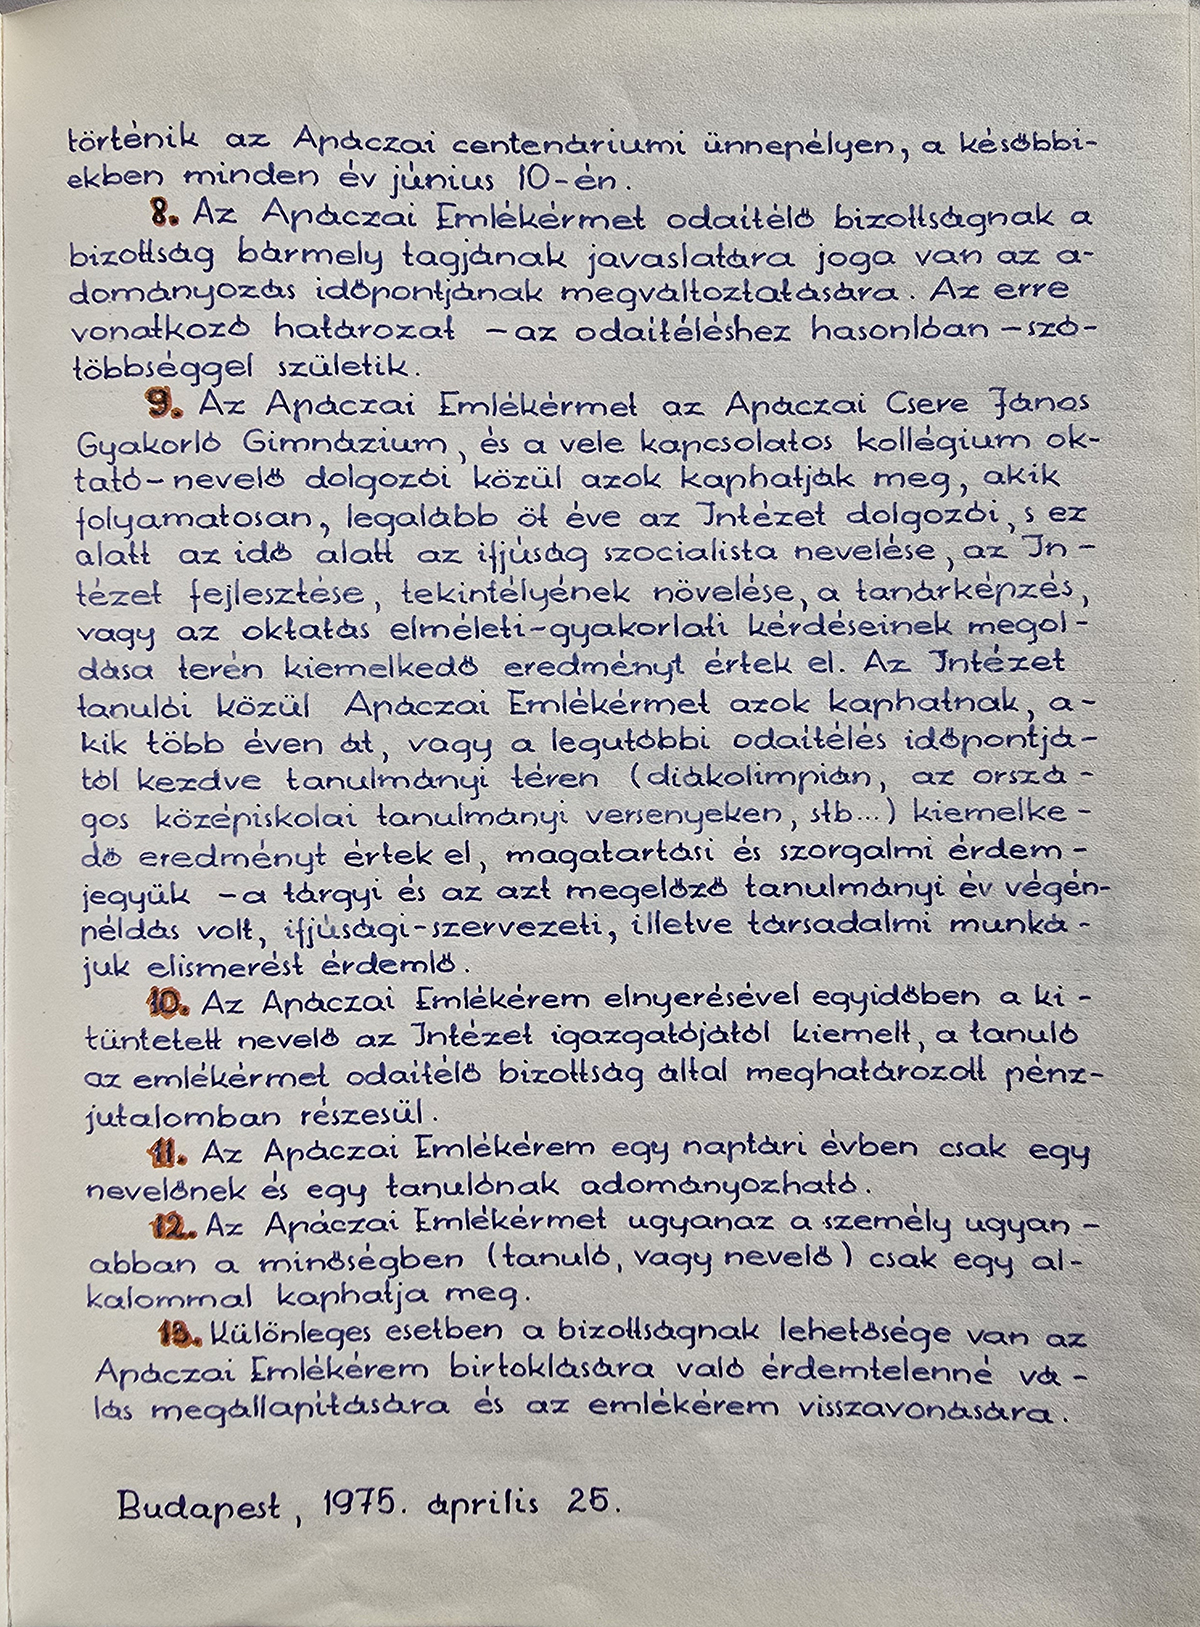 történik az Apáczai centenáriumi ünnepélyen, a későbbi-
ekben minden év június 10-én.
8. Az Apáczai Emlékérmet odaítélő bizottságnak a
bizottság bármely tagjának javaslatára joga van az a-
dományozás időpontjának megváltoztatására. Az erre
vonatkozó határozat - az odaítéléshez hasonlóan - szó-
többséggel születik.
9. Az Apáczai Emlékérmet az Apáczai Csere János
Gyakorló Gimnázium, és a vele kapcsolatos kollégium ok-
tató-nevelő dolgozói közül azok kaphatják meg, akik
folyamatosan, legalább öt éve az Intézet dolgozói, s ez
alatt az idő alatt az ifjúság szocialista nevelése, az In-
tézet fejlesztése, tekintélyének növelése, a tanárképzés,
vagy az oktatás elméleti-gyakorlati kérdéseinek megol-
dása terén kiemelkedő eredményt értek el. Az Intézet
tanulói közül Apáczai Emlékérmet azok kaphatnak, a-
kik több éven át, vagy a legutóbbi odaítélés időpontjá-
tól kezdve tanulmányi téren (diákolimpián, az orszá-
gos középiskolai tanulmányi versenyeken, stb...) kiemelke-
dő eredményt értek el, magatartási és szorgalmi érdem-
jegyük - a tárgyi és az azt megelőző tanulmányi év végén-
példás volt, ifjúsági-szervezeti, illetve társadalmi munká-
juk elismerést érdemlő.
10. Az Apáczai Emlékérem elnyerésével egyidőben a ki-
tüntetett nevelő az Intézet igazgatójától kiemelt, a tanuló
az emlékérmet odaítélő bizottság által meghatározott pénz-
jutalomban részesül.
11. Az Apáczai Emlékérem egy naptári évben csak egy
nevelőnek és egy tanulónak adományozható.
12. Az Apáczai Emlékérmet ugyanaz a személy ugyan-
abban a minőségben (tanuló, vagy nevelő) csak egy al-
kalommal kaphatja meg.
13. Különleges esetben a bizottságnak lehetősége van az
Apáczai Emlékérem birtoklására való érdemtelenné vá-
lás megállapítására és az emlékérem visszavonására.
Budapest, 1975. április 25.